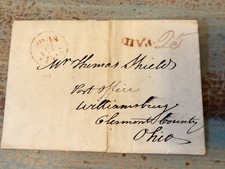 PAID 25
Mr Thomas Shields
Post Office
Williamsburg
Clermont County
Ohio